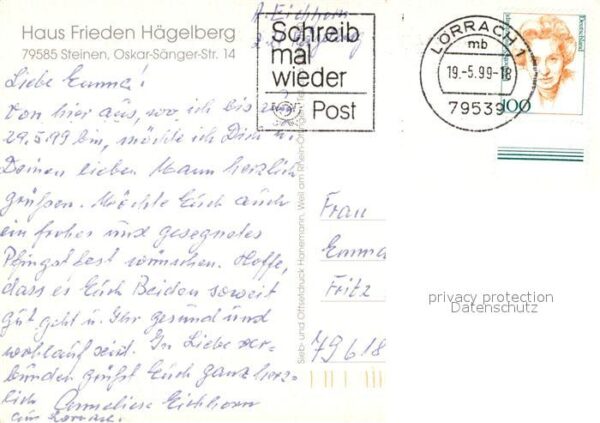 Haus Frieden Hägelberg
79585 Steinen, Oskar-Sänger-Str. 14
A. Eichhorn
z. Z. Hägelberg
Schreib
mal
wieder
Post
LÖRRACH 1
mb
19.-5.99-18
79539
Deutschland
100
Liebe Emma!
Von hier aus, wo ich bis zum
29.5.99 bin, möchte ich Dich u.
Deinen lieben Mann herzlich
grüßen. Möchte Euch auch
ein frohes und gesegnetes
Pfingstfest wünschen. Hoffe,
dass es Euch Beiden soweit
gut geht u. Ihr gesund und
wohlauf seid. In Liebe ver-
bunden grüßt Euch ganz herz-
lich Anneliese Eichhorn
aus
Sieb- und Offsetdruck Hanemann, Weil am Rhein-Ötlingen
Frau
Emma
Fritz
79618
privacy protection
Datenschutz